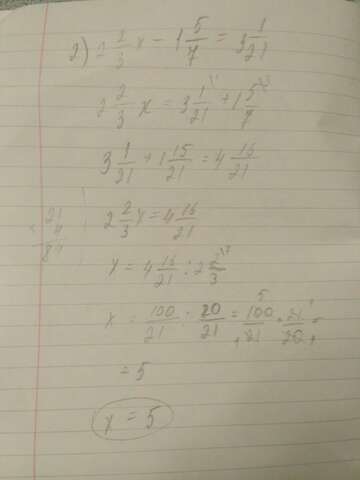 2) 2 2/3 x - 1 5/7 = 3 1/21
2 2/3 x = 3 1/21 + 1 5/7
3 1/21 + 1 15/21 = 4 16/21
21
× 4
84
2 2/3 x = 4 16/21
x = 4 16/21 : 2 2/3
x = 100/21 : 20/21 = 100/21 · 21/20 =
= 5
x = 5